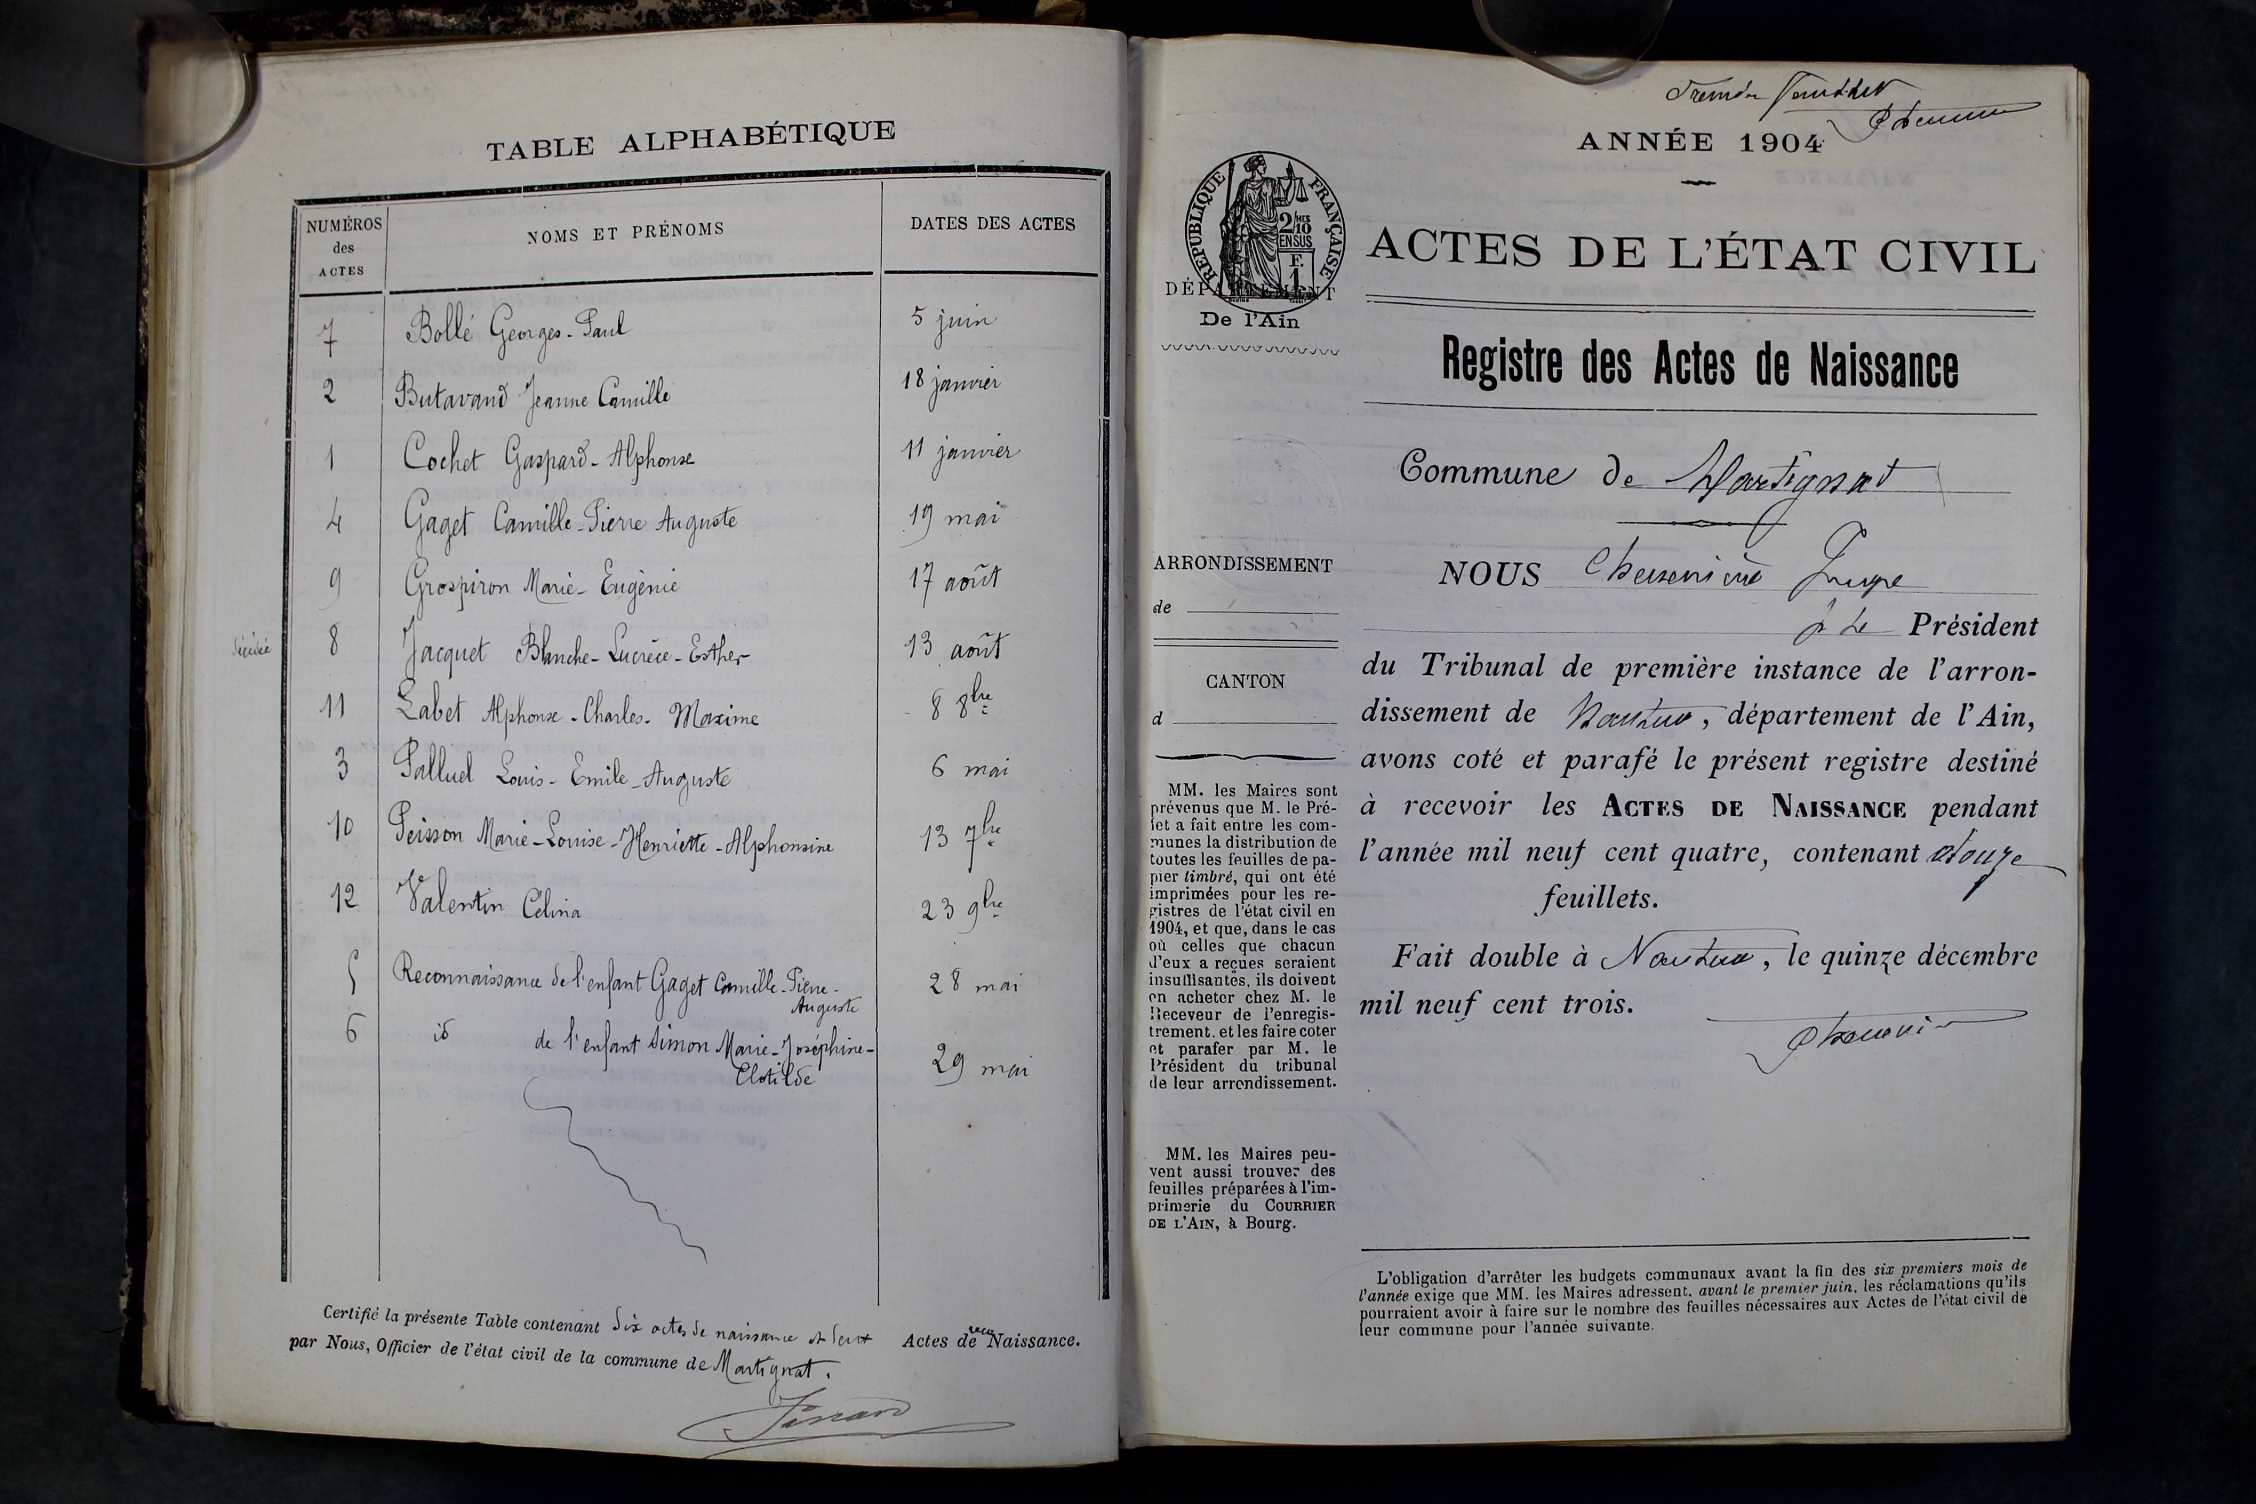 TABLE ALPHABÉTIQUE
NUMÉROS des ACTES
NOMS ET PRÉNOMS
DATES DES ACTES
7 Bollé Georges-Paul 5 juin
2 Butavand Jeanne Camille 18 janvier
1 Cochet Gaspard-Alphonse 11 janvier
4 Gaget Camille-Pierre Auguste 19 mai
9 Grospiron Marie-Eugénie 17 août
décédée 8 Jacquet Blanche-Lucrèce-Esther 13 août
11 Labet Alphonse-Charles-Maxime 8 8bre
3 Palluel Louis-Emile-Auguste 6 mai
10 Peisson Marie-Louise-Henriette-Alphonsine 13 7bre
12 Valentin Célina 23 9bre
5 Reconnaissance de l'enfant Gaget Camille-Pierre- 28 mai
Auguste
6 id de l'enfant Simon Marie-Joséphine- 29 mai
Clotilde
Certifié la présente Table contenant dix actes de naissance et deux Actes de recon Naissance.
par Nous, Officier de l'état civil de la commune de Martignat.
Premier feuillet
ANNÉE 1904
RÉPUBLIQUE FRANÇAISE
2/10 MES
EN SUS
F.
1
DÉPARTEMENT
De l'Ain
ARRONDISSEMENT
de
CANTON
d
MM. les Maires sont
prévenus que M. le Pré-
fet a fait entre les com-
munes la distribution de
toutes les feuilles de pa-
pier timbré, qui ont été
imprimées pour les re-
gistres de l'état civil en
1904, et que, dans le cas
où celles que chacun
d'eux a reçues seraient
insuffisantes, ils doivent
en acheter chez M. le
Receveur de l'enregis-
trement, et les faire coter
et parafer par M. le
Président du tribunal
de leur arrondissement.
MM. les Maires peu-
vent aussi trouver des
feuilles préparées à l'im-
primerie du COURRIER
DE L'AIN, à Bourg.
ACTES DE L'ÉTAT CIVIL
Registre des Actes de Naissance
Commune de Martignat
NOUS Juge
Président
du Tribunal de première instance de l'arron-
dissement de Nantua, département de l'Ain,
avons coté et parafé le présent registre destiné
à recevoir les ACTES DE NAISSANCE pendant
l'année mil neuf cent quatre, contenant douze
feuillets.
Fait double à Nantua, le quinze décembre
mil neuf cent trois.
L'obligation d'arrêter les budgets communaux avant la fin des six premiers mois de
l'année exige que MM. les Maires adressent, avant le premier juin, les réclamations qu'ils
pourraient avoir à faire sur le nombre des feuilles nécessaires aux Actes de l'état civil de
leur commune pour l'année suivante.